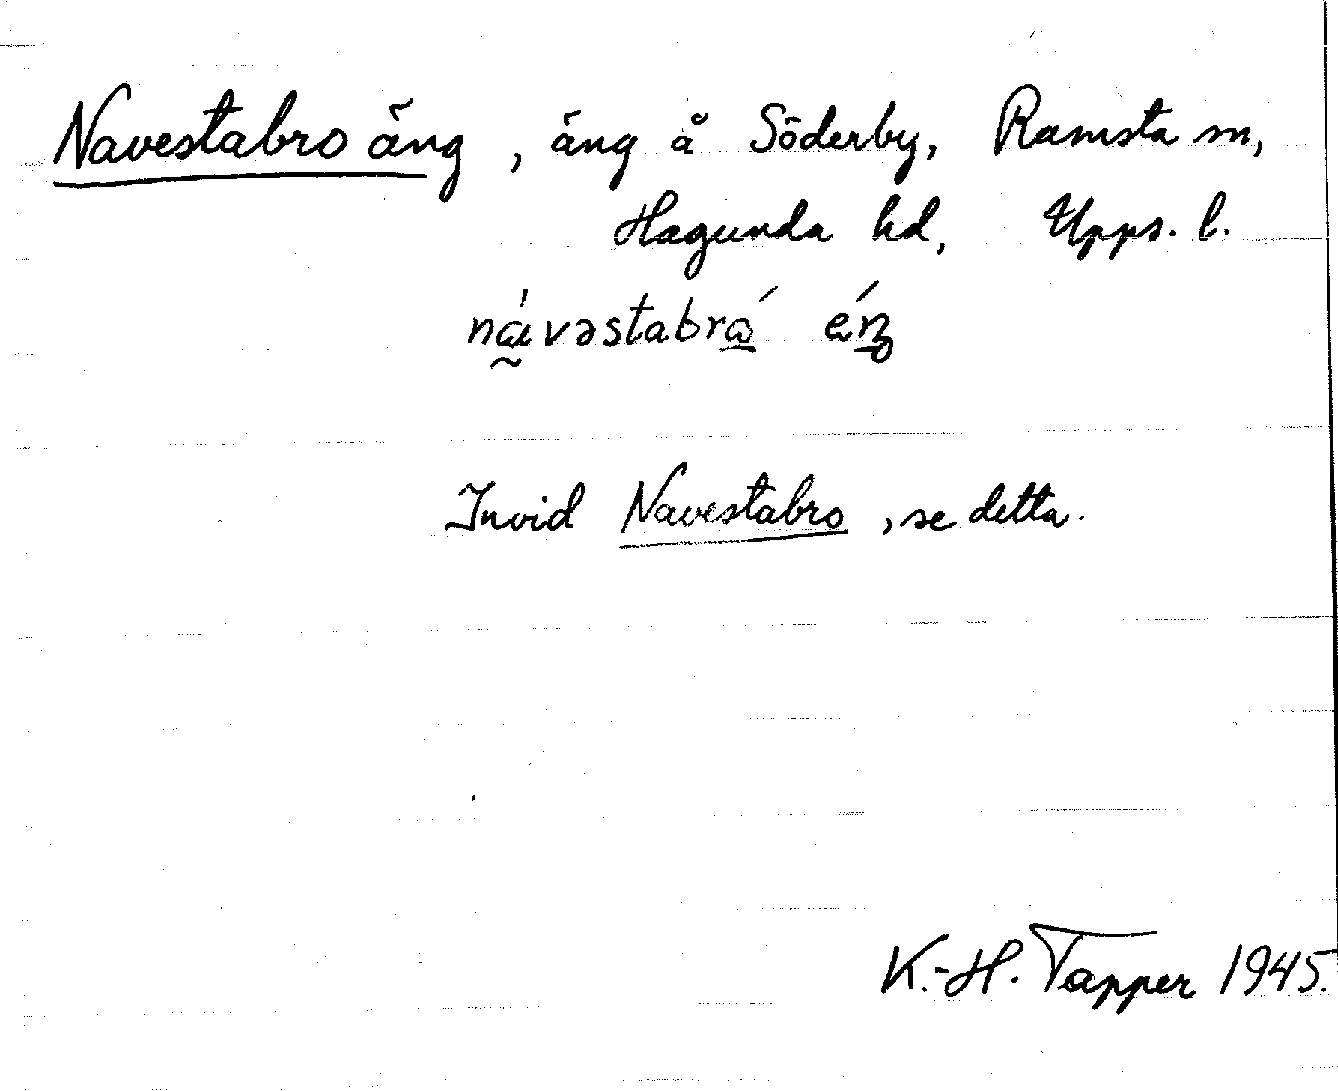 Navestabro äng, äng å Söderby, Ramsta sn,
Hagunda hd, Upps. l.
nà̰vəstabrǻ éŋ
Invid Navestabro, se detta.
K.-H. Tapper 1945.